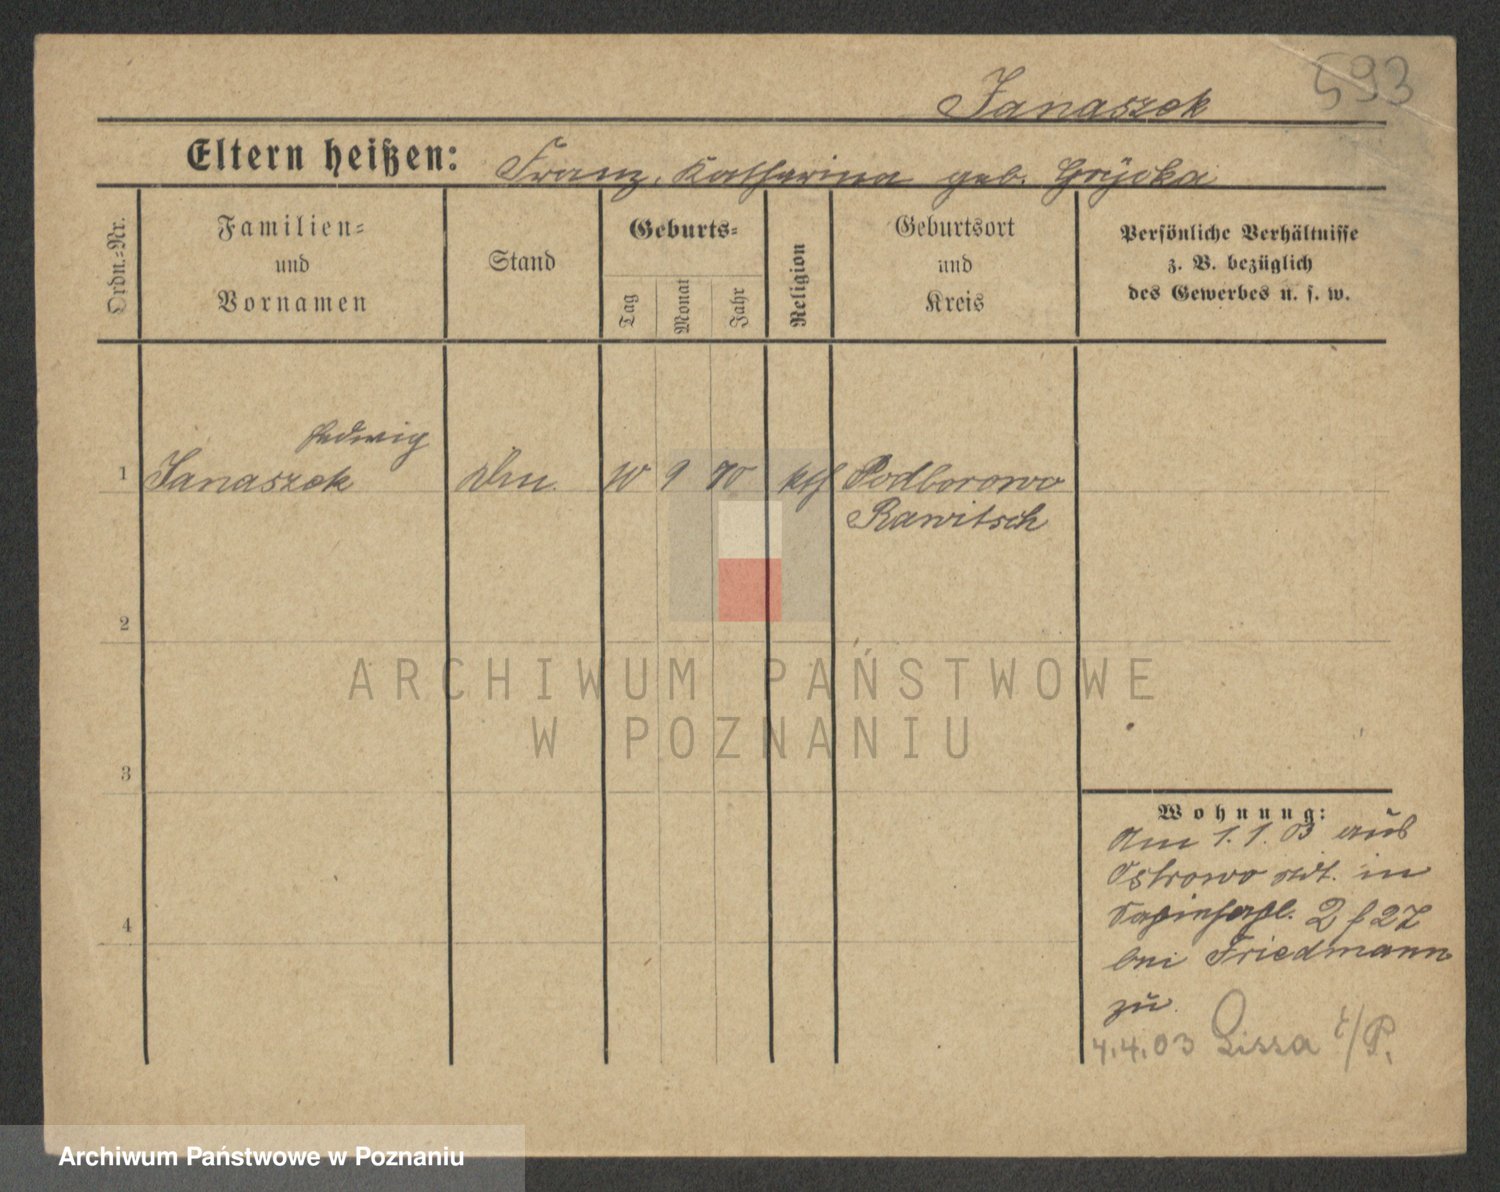 593
Janaszek
Eltern heißen: Franz, Katharina geb. Gryćka
Ordn.-Nr.
Familien-
und
Vornamen
Stand
Geburts-
Tag
Monat
Jahr
Religion
Geburtsort
und
Kreis
Persönliche Verhältnisse
z. B. bezüglich
des Gewerbes u. s. w.
Hedwig
1 Janaszek 9 70 kth Podborowo
Rawitsch
2
3
4
Wohnung:
Am 1. 1. 03 aus
Ostrowo in
2
bei Friedmann
zu
4.4.03 Lissa i/P.
ARCHIWUM PAŃSTWOWE
W POZNANIU
Archiwum Państwowe w Poznaniu